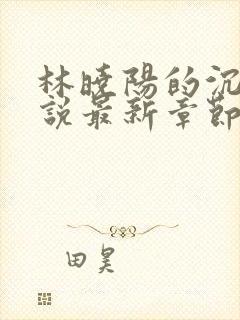 林曉陽的沉
說最新章節
田昊